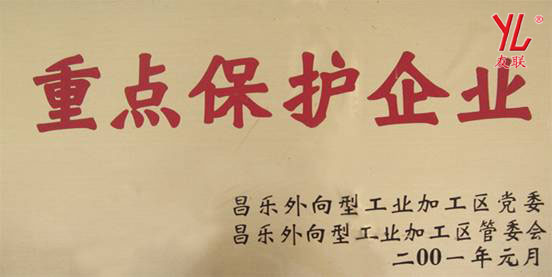 YL®
友联
重点保护企业
昌乐外向型工业加工区党委
昌乐外向型工业加工区管委会
二00一年元月